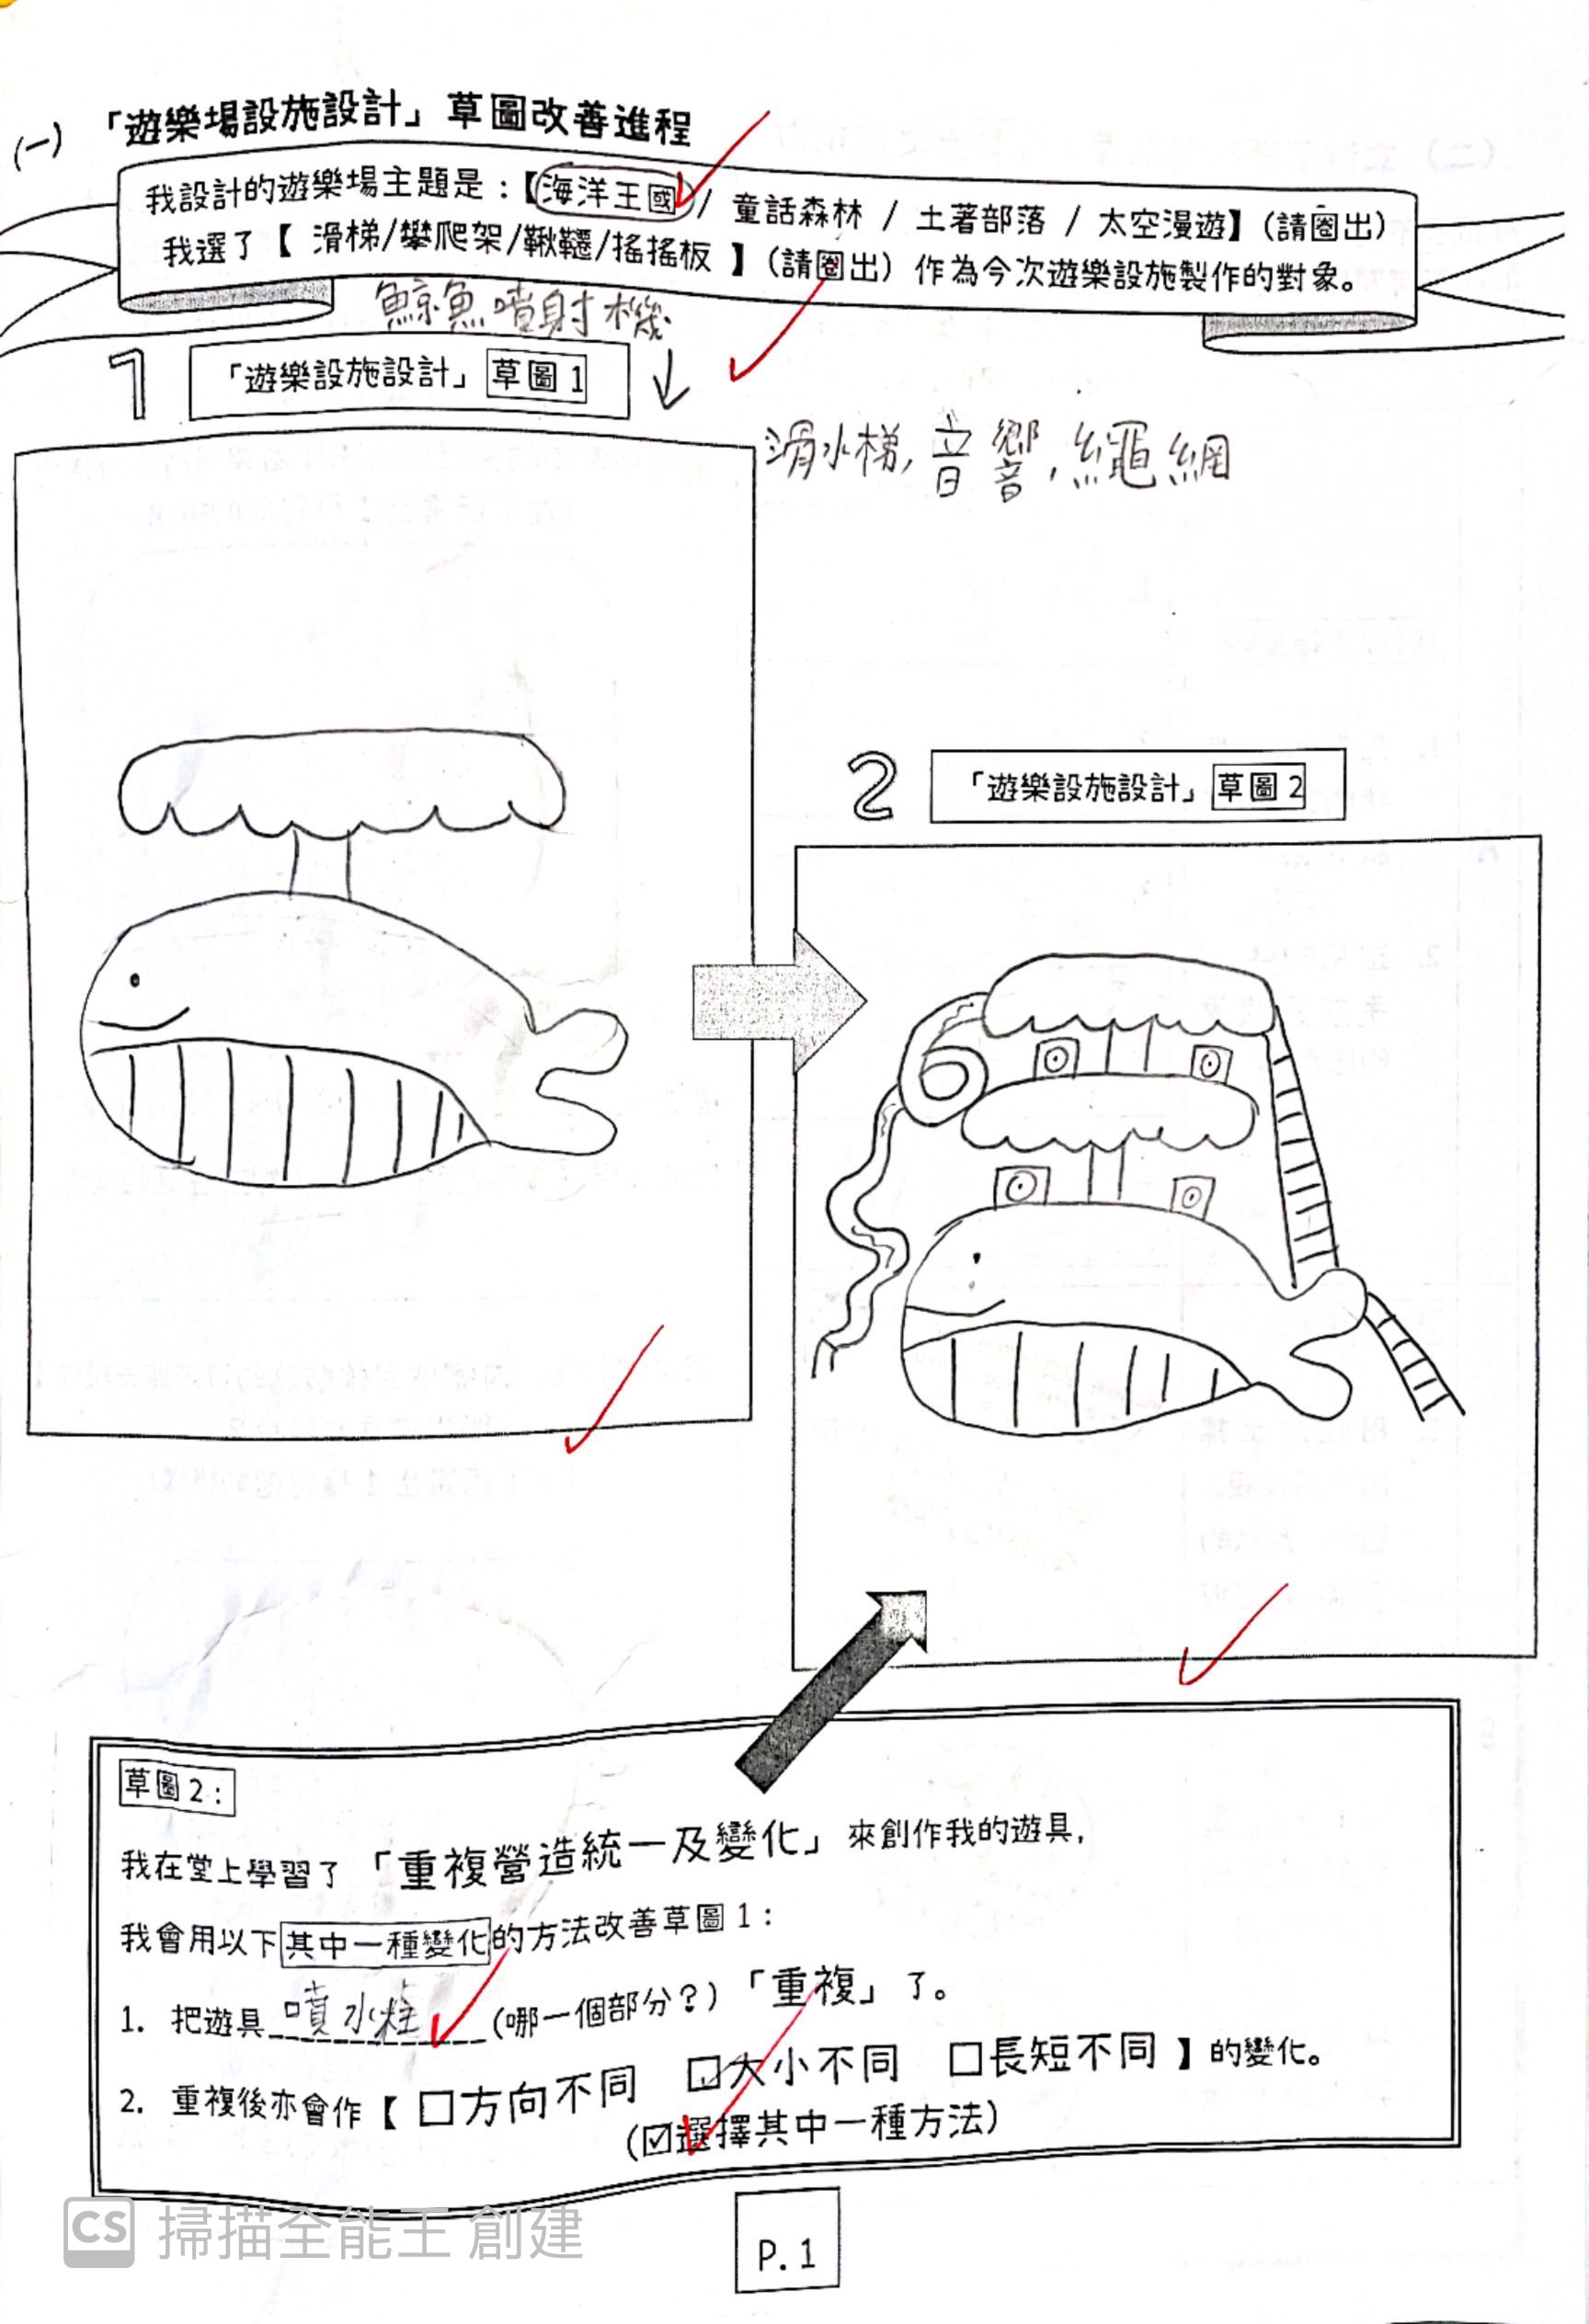 (一) 「遊樂場設施設計」草圖改善進程
我設計的遊樂場主題是：【海洋王國 / 童話森林 / 土著部落 / 太空漫遊】(請圈出)
我選了【 滑梯/攀爬架/鞦韆/搖搖板 】(請圈出) 作為今次遊樂設施製作的對象。
鯨魚噴射機
1 「遊樂設施設計」草圖 1
滑水梯, 音響, 繩網
2 「遊樂設施設計」草圖 2
草圖 2：
我在堂上學習了「重複營造統一及變化」來創作我的遊具，
我會用以下其中一種變化的方法改善草圖 1：
1. 把遊具 噴水柱 (哪一個部分？)「重複」了。
2. 重複後亦會作【 □方向不同 ☑大小不同 □長短不同 】的變化。
(☑選擇其中一種方法)
CS 掃描全能王 創建
P. 1